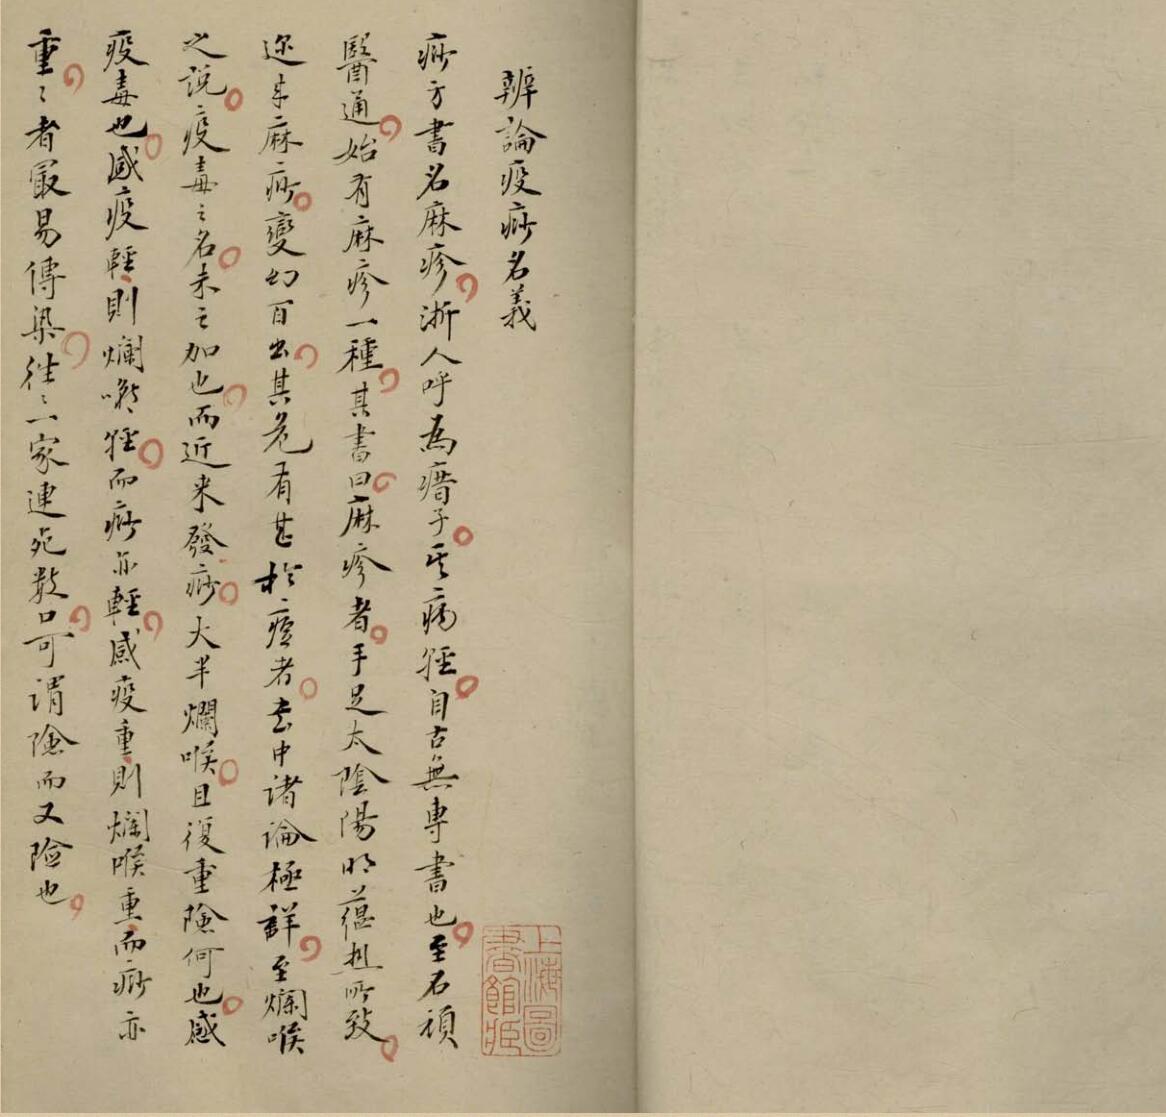 辨論疫痧名義
痧方書名麻疹浙人呼為瘄子其病輕自古無專書也至石頑
醫通始有麻疹一種其書曰麻疹者手足太陰陽明蘊熱所致
迩年麻痧變幻百出其危有甚於痘者書中諸論極詳至爛喉
之說疫毒之名未之加也而近来發痧大半爛喉且復重險何也感
疫毒也感疫輕則爛喉輕而痧亦輕感疫重則爛喉重而痧亦
重〻者最易傳染往〻一家連死数口可謂險而又险也
上海圖
書館藏